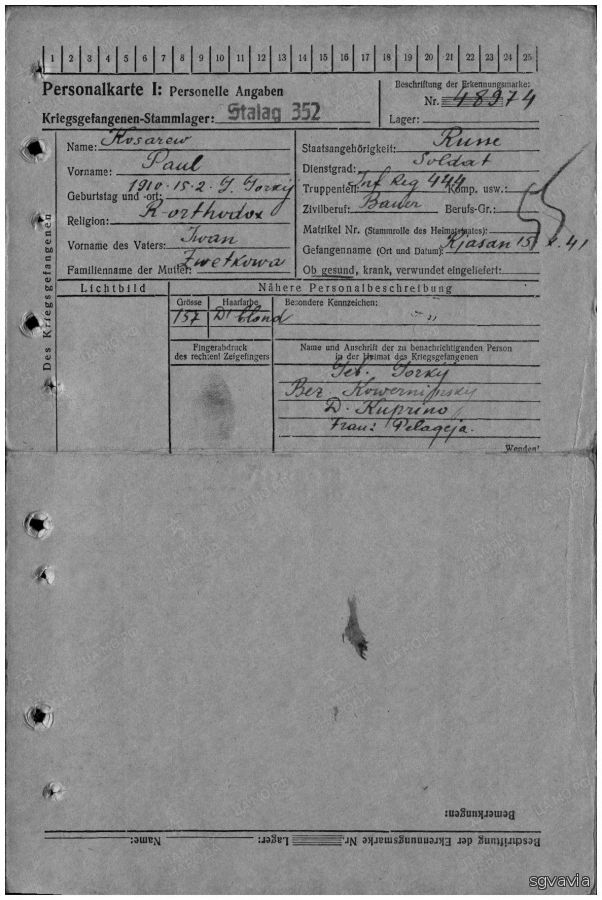 1 2 3 4 5 6 7 8 9 10 11 12 13 14 15 16 17 18 19 20 21 22 23 24 25
Personalkarte I: Personelle Angaben
Kriegsgefangenen-Stammlager: Stalag 352
Beschriftung der Erkennungsmarke:
Nr. 48974
Lager:
Des Kriegsgefangenen
Name: Kosarew
Vorname: Paul
Geburtstag und -ort: 1910.15.2. G. Gorkij
Religion: R-orthodox
Vorname des Vaters: Iwan
Familienname der Mutter: Zwetkowa
Staatsangehörigkeit: Russe
Dienstgrad: Soldat
Truppenteil: Inf Reg 444 Komp. usw.:
Zivilberuf: Bauer Berufs-Gr.:
Matrikel Nr. (Stammrolle des Heimatstaates):
Gefangenname (Ort und Datum): Kjasan 15. 41
Ob gesund, krank, verwundet eingeliefert:
Lichtbild
Nähere Personalbeschreibung
Grösse Haarfarbe Besondere Kennzeichen:
157 Dl blond
Fingerabdruck
des rechten! Zeigefingers
Name und Anschrift der zu benachrichtigenden Person
in der Heimat des Kriegsgefangenen
Geb. Gorkij
Bez Kowerninsky
D. Kuprino
Frau: Pelageja.
Wenden!
Bemerkungen:
Beschriftung der Ekrennungsmarke Nr. Lager: Name:
sgvavia